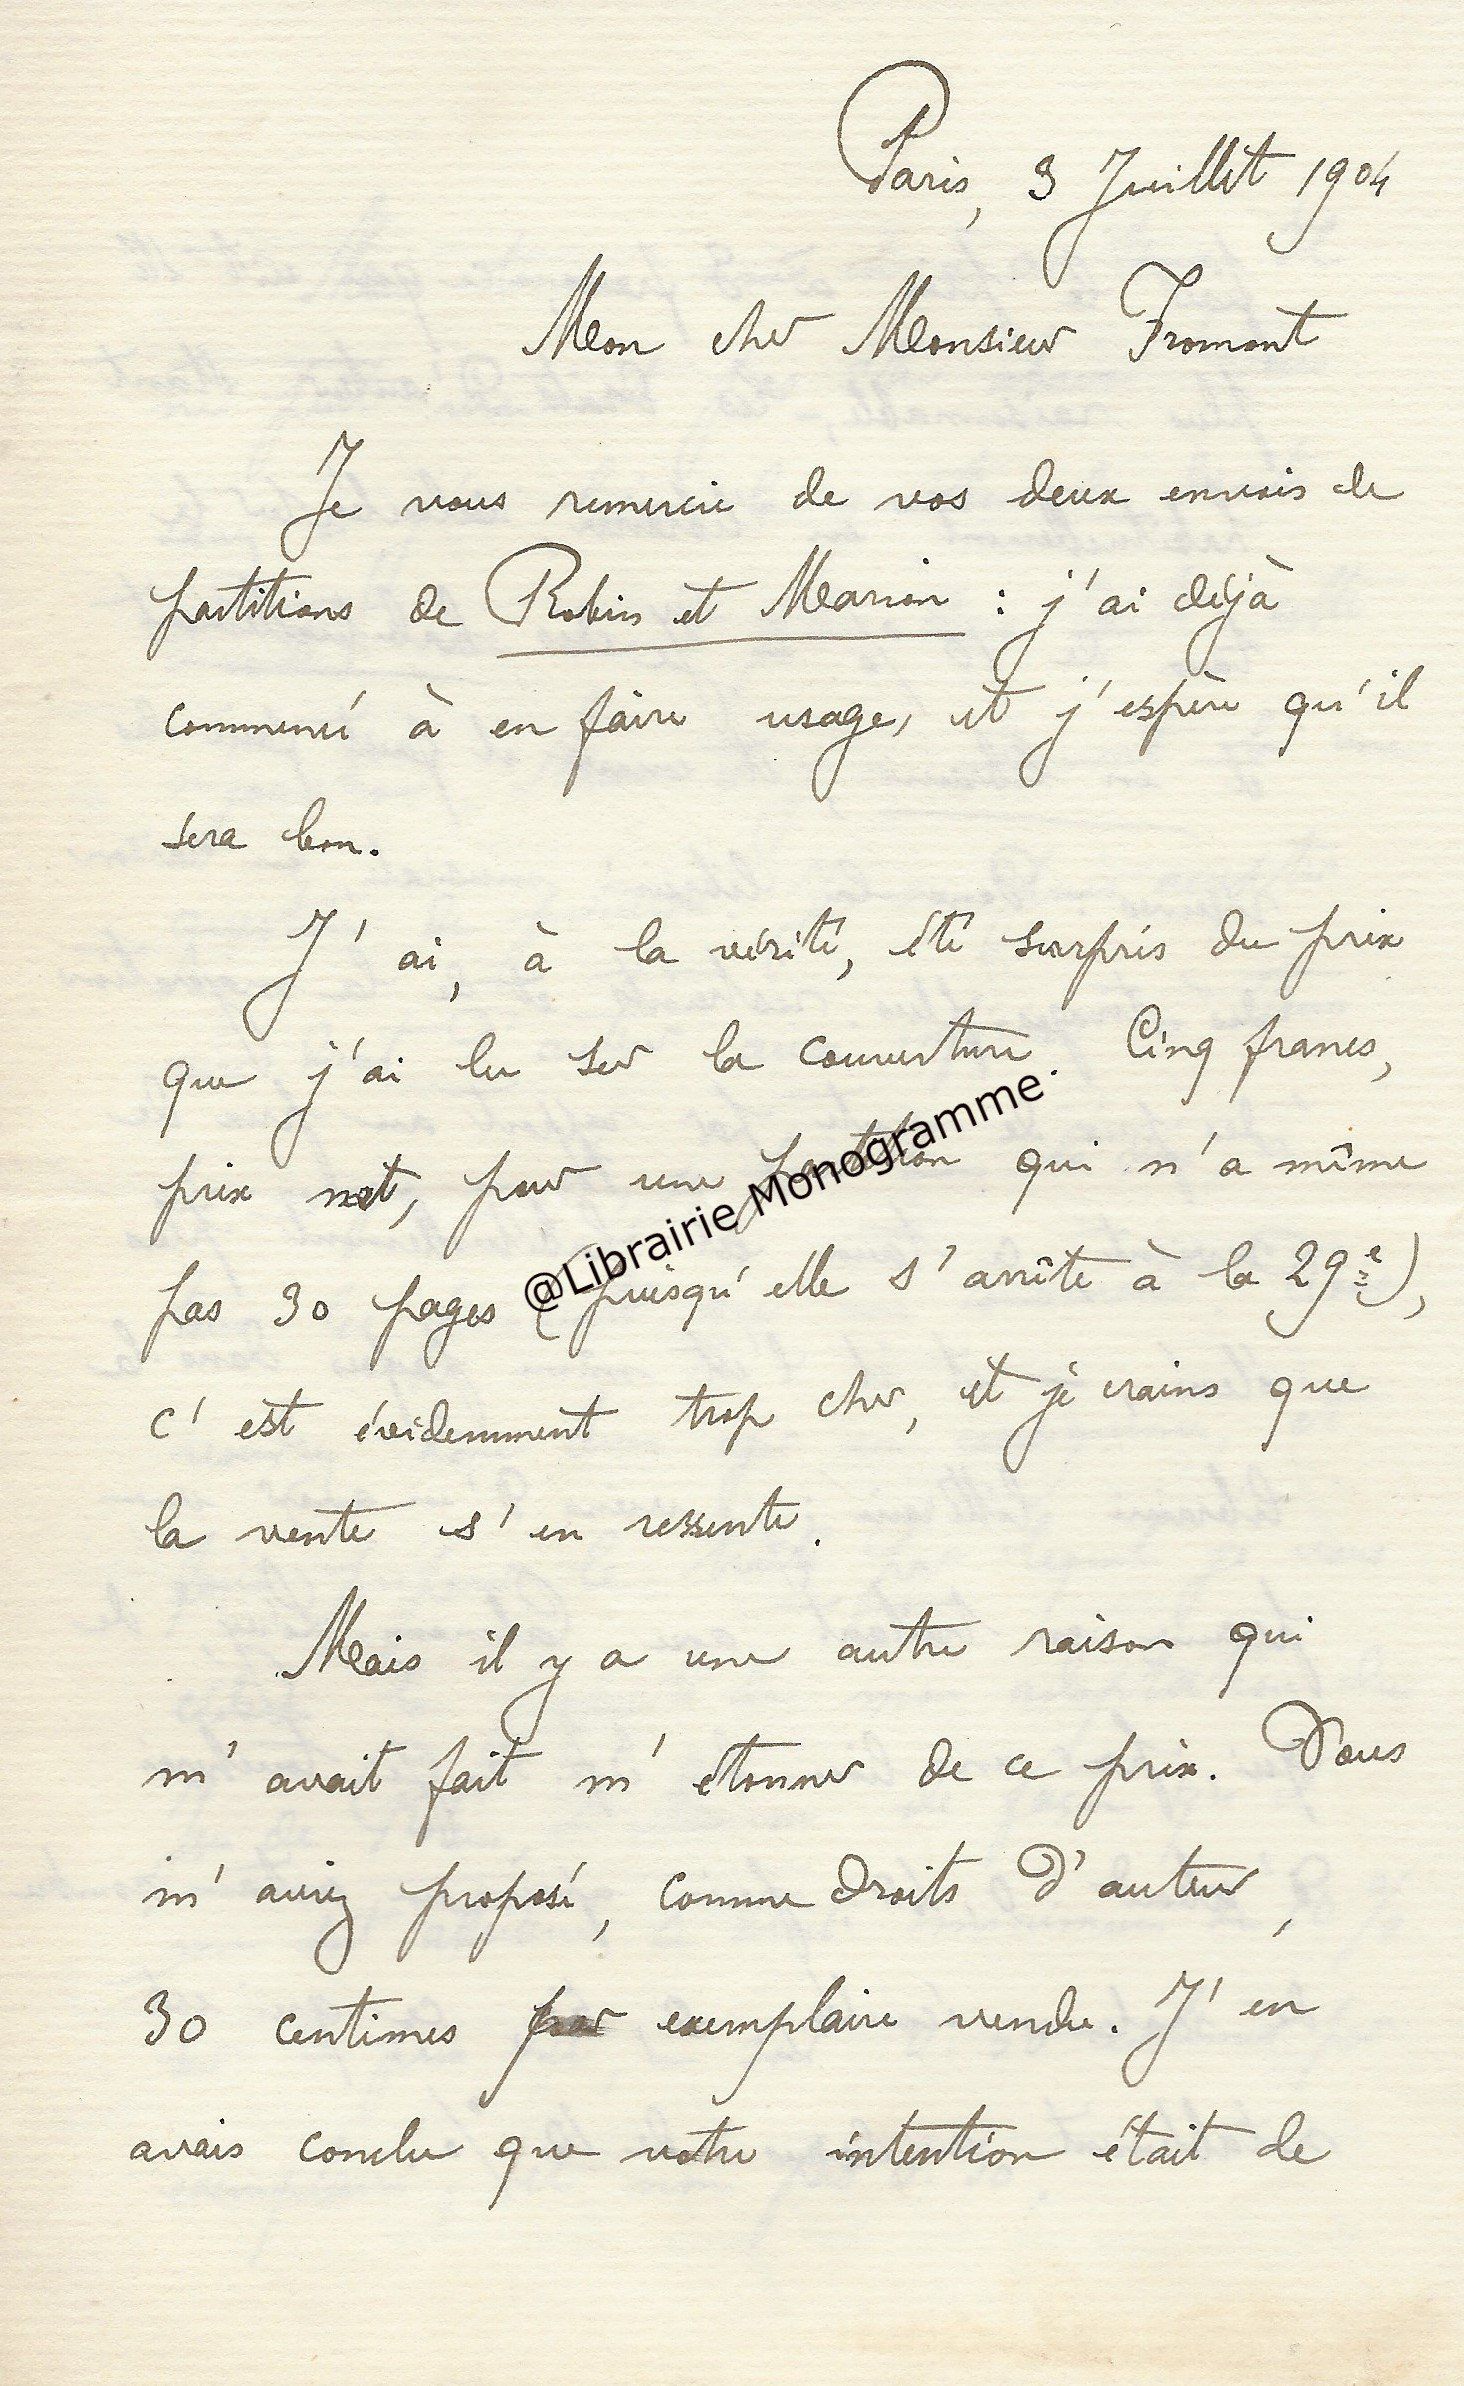 Paris, 3 Juillet 1904
Mon cher Monsieur Fromont
Je vous remercie de vos deux envois de
partitions de Robin et Marion : j'ai déjà
commencé à en faire usage, et j'espère qu'il
sera bon.
J'ai, à la vérité, été surpris du prix
que j'ai lu sur la couverture. Cinq francs,
prix net, pour une partition qui n'a même
@Librairie Monogramme
pas 30 pages (puisqu'elle s'arrête à la 29e),
c'est évidemment trop cher, et je crains que
la vente s'en ressente.
Mais il y a une autre raison qui
m'avait fait m'étonner de ce prix. Vous
m'aviez proposé, comme droits d'auteur,
30 centimes par exemplaire vendu. J'en
avais conclu que votre intention était de